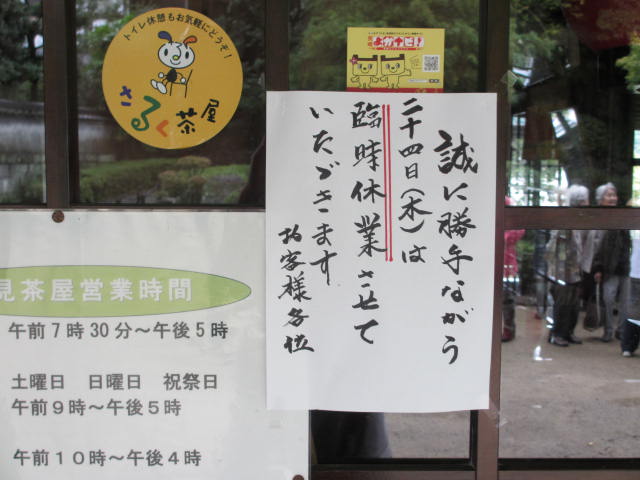 トイレ休憩もお気軽にどうぞ!
さるく茶屋
よかナビ!
誠に勝手ながら
二十四日(木)は
臨時休業させて
いただきます
お客様各位
見茶屋営業時間
午前7時30分～午後5時
土曜日 日曜日 祝祭日
午前9時～午後5時
午前10時～午後4時